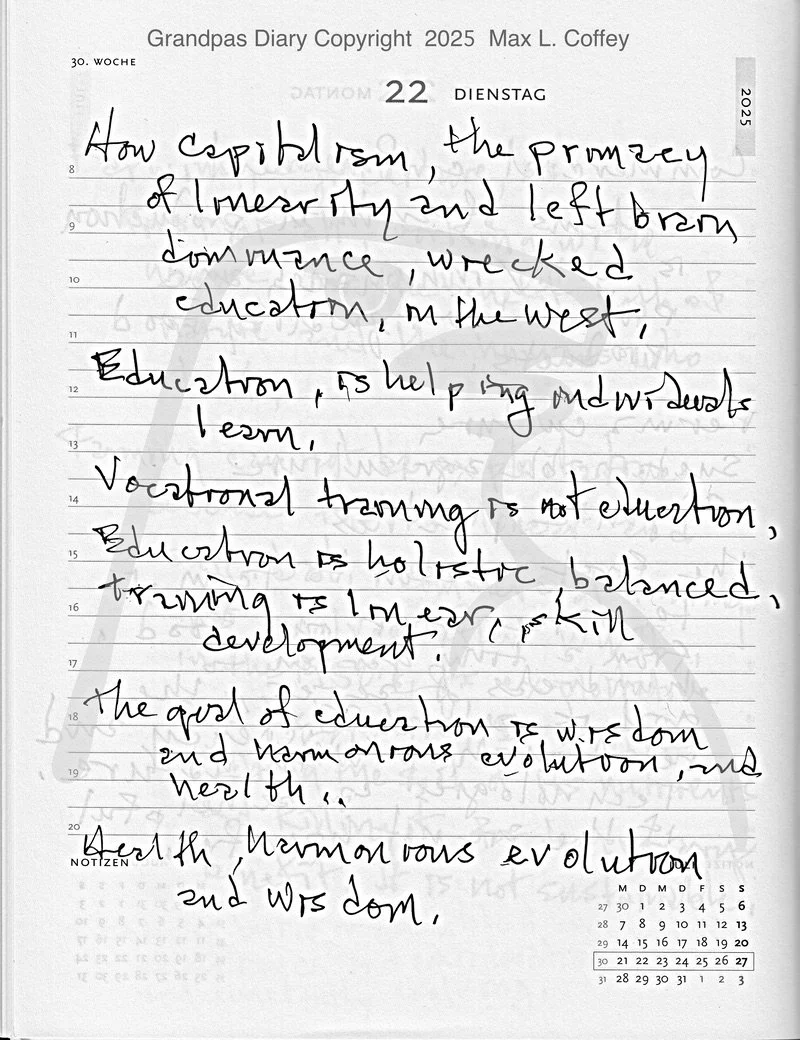 Grandpas Diary Copyright 2025 Max L. Coffey
30. WOCHE
22 DIENSTAG
2025
How capitalism, the primacy
of linearity and left brain
dominance, wrecked
education, in the west.
Education, is helping individuals
learn.
Vocational training is not education,
Education is holistic, balanced,
training is linear, skill
development.
The goal of education is wisdom
and harmonious evolution, and
health..
Health, harmonious evolution
and wisdom.
8
9
10
11
12
13
14
15
16
17
18
19
20
NOTIZEN
JULI
M D M D F S S
27 30 1 2 3 4 5 6
28 7 8 9 10 11 12 13
29 14 15 16 17 18 19 20
30 21 22 23 24 25 26 27
31 28 29 30 31 1 2 3